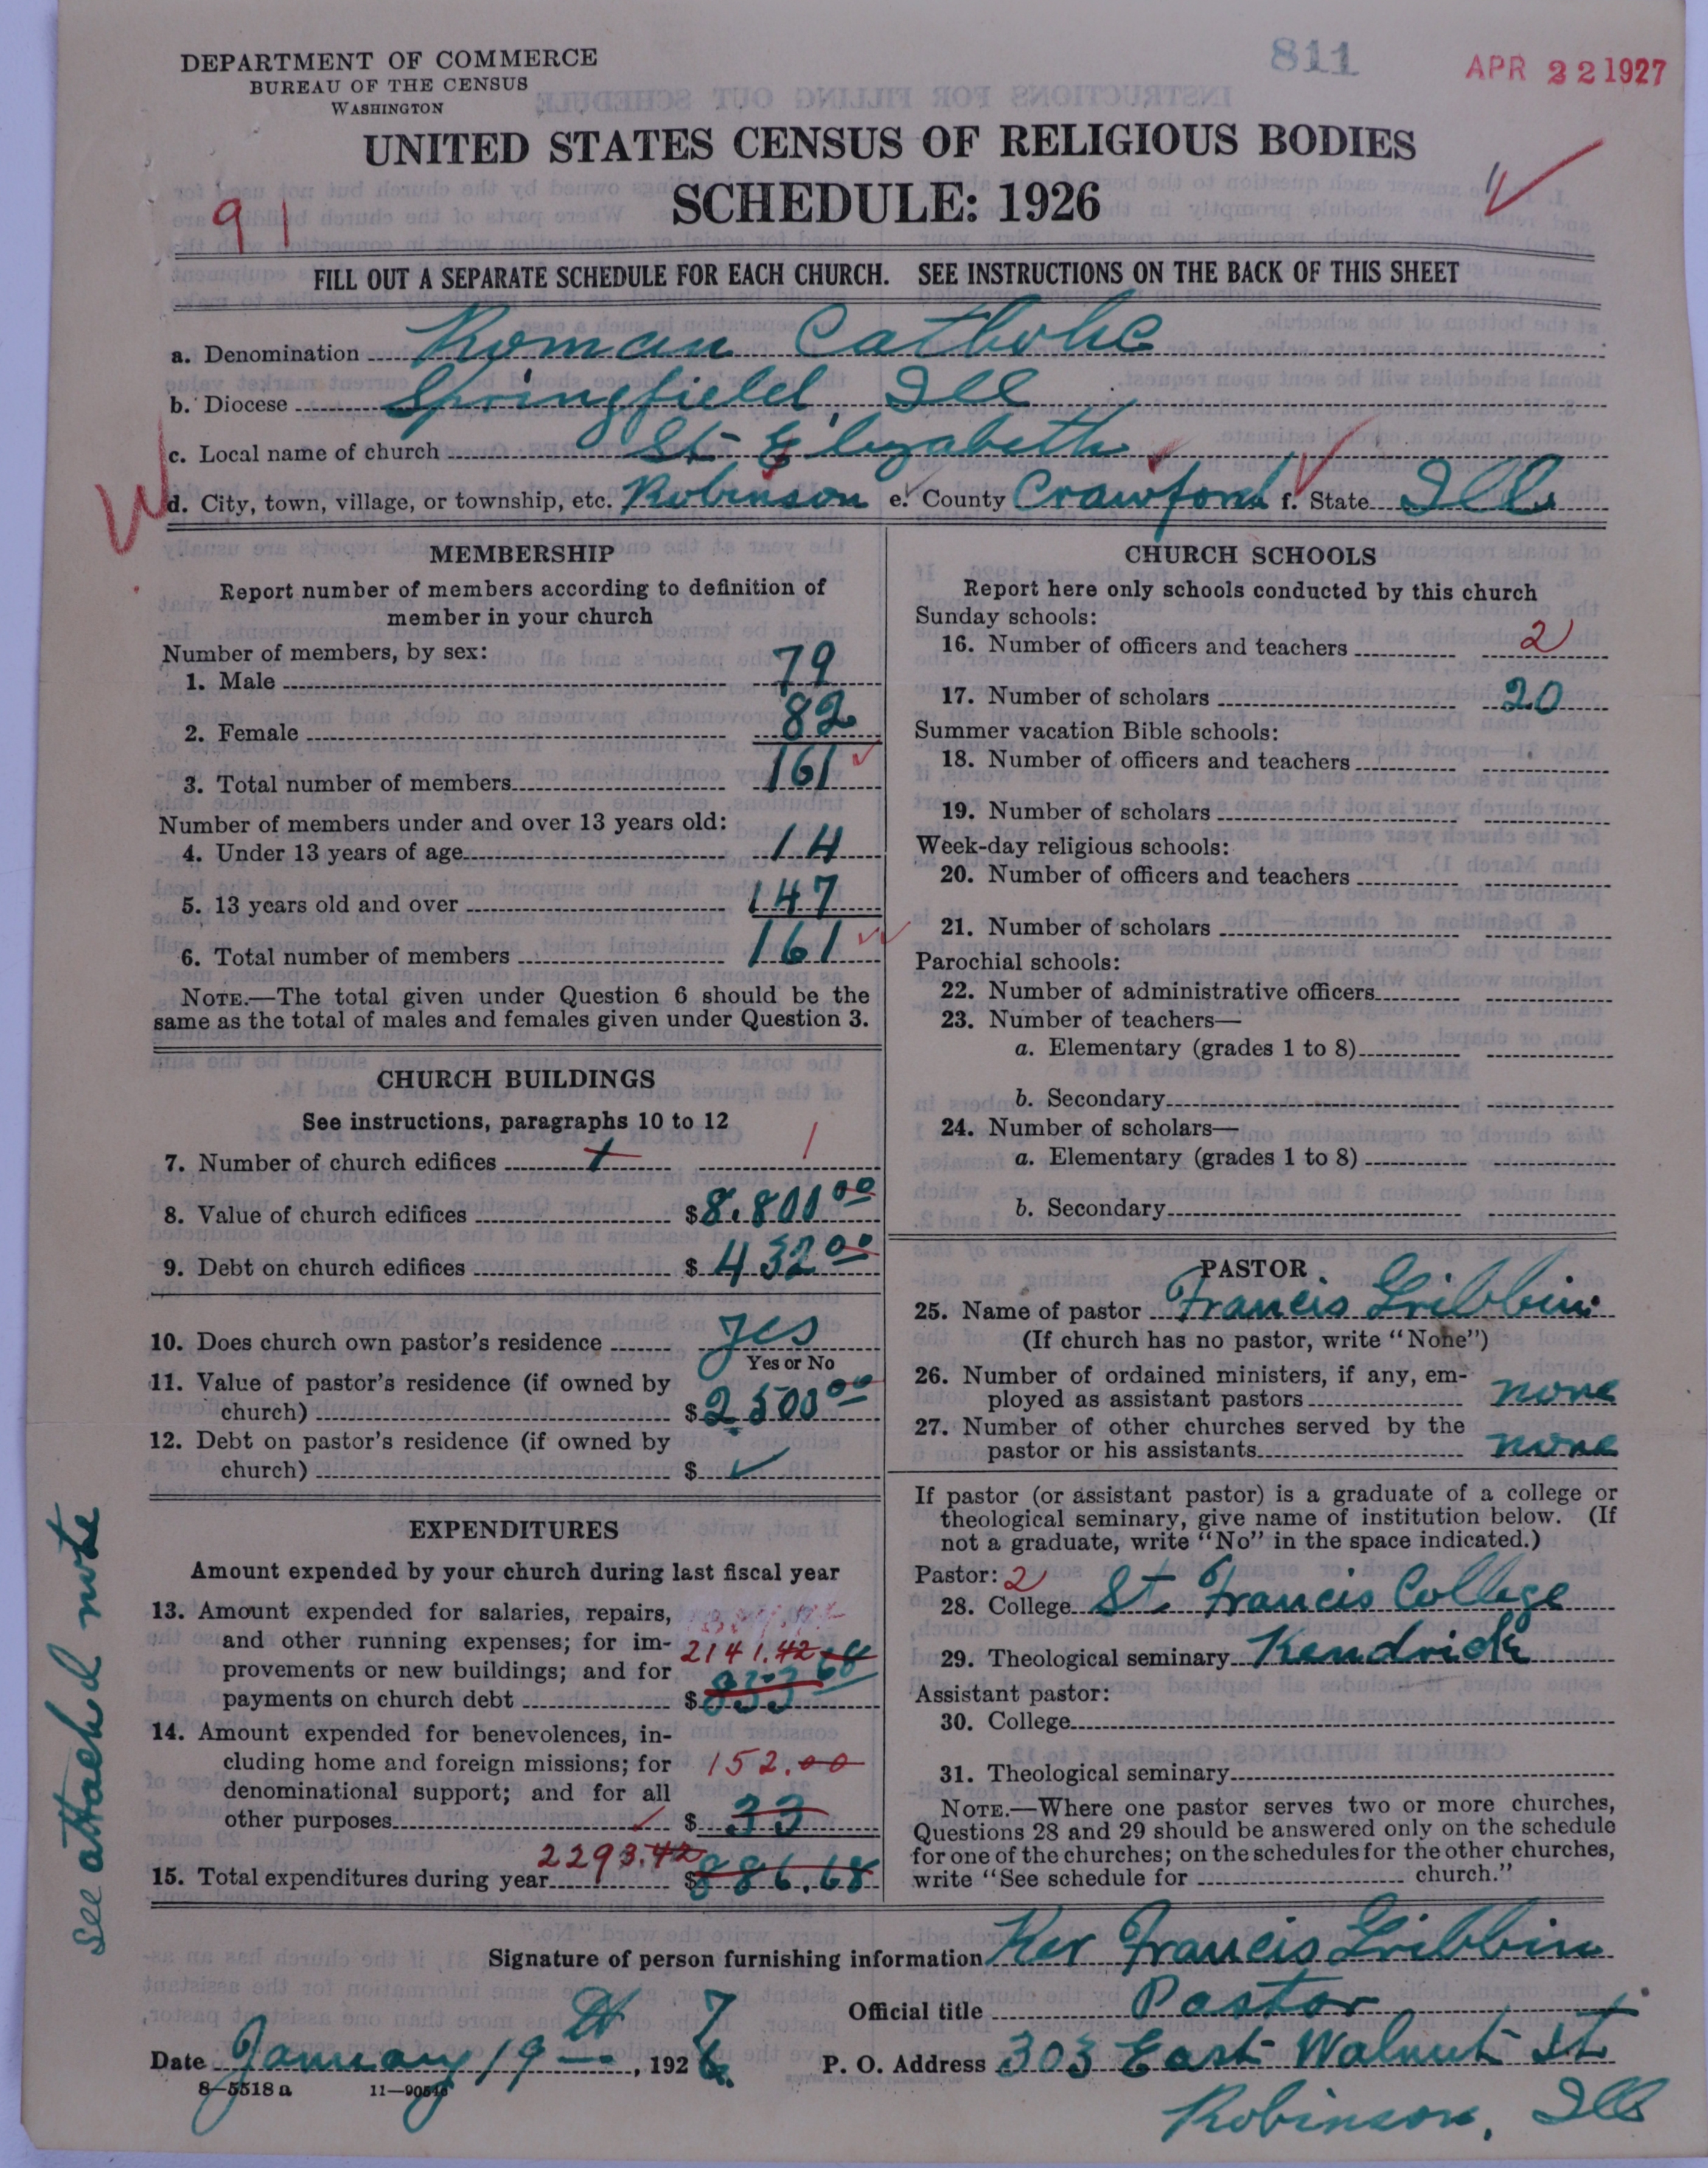 DEPARTMENT OF COMMERCE
BUREAU OF THE CENSUS
WASHINGTON
811
APR 22 1927
UNITED STATES CENSUS OF RELIGIOUS BODIES
SCHEDULE: 1926
91
FILL OUT A SEPARATE SCHEDULE FOR EACH CHURCH. SEE INSTRUCTIONS ON THE BACK OF THIS SHEET
a. Denomination Roman Catholic
b. Diocese Springfield, Ill
c. Local name of church St Elizabeth
d. City, town, village, or township, etc. Robinson e. County Crawford f. State Ill.
MEMBERSHIP
Report number of members according to definition of
member in your church
Number of members, by sex:
1. Male 79
2. Female 82
3. Total number of members 161
Number of members under and over 13 years old:
4. Under 13 years of age 14
5. 13 years old and over 147
6. Total number of members 161
NOTE.—The total given under Question 6 should be the
same as the total of males and females given under Question 3.
CHURCH BUILDINGS
See instructions, paragraphs 10 to 12
7. Number of church edifices 1 1
8. Value of church edifices $8,800 00
9. Debt on church edifices $432 00
10. Does church own pastor's residence Yes
Yes or No
11. Value of pastor's residence (if owned by
church) $2,500 00
12. Debt on pastor's residence (if owned by
church) $
EXPENDITURES
Amount expended by your church during last fiscal year
13. Amount expended for salaries, repairs,
and other running expenses; for im- 2141.42
provements or new buildings; and for
payments on church debt $853 68
14. Amount expended for benevolences, in-
cluding home and foreign missions; for 152.00
denominational support; and for all
other purposes $33
2293.42
15. Total expenditures during year $886.68
see attached note
CHURCH SCHOOLS
Report here only schools conducted by this church
Sunday schools:
16. Number of officers and teachers 2
17. Number of scholars 20
Summer vacation Bible schools:
18. Number of officers and teachers
19. Number of scholars
Week-day religious schools:
20. Number of officers and teachers
21. Number of scholars
Parochial schools:
22. Number of administrative officers
23. Number of teachers—
a. Elementary (grades 1 to 8)
b. Secondary
24. Number of scholars—
a. Elementary (grades 1 to 8)
b. Secondary
PASTOR
25. Name of pastor Francis Gribbin
(If church has no pastor, write "None")
26. Number of ordained ministers, if any, em-
ployed as assistant pastors none
27. Number of other churches served by the
pastor or his assistants none
If pastor (or assistant pastor) is a graduate of a college or
theological seminary, give name of institution below. (If
not a graduate, write "No" in the space indicated.)
Pastor: 2
28. College St. Francis College
29. Theological seminary Kendrick
Assistant pastor:
30. College
31. Theological seminary
NOTE.—Where one pastor serves two or more churches,
Questions 28 and 29 should be answered only on the schedule
for one of the churches; on the schedules for the other churches,
write "See schedule for church."
Signature of person furnishing information Rev Francis Gribbin
Official title Pastor
Date January 19th, 1927
P. O. Address 303 East Walnut St
Robinson, Ill
8—5518a 11—90516